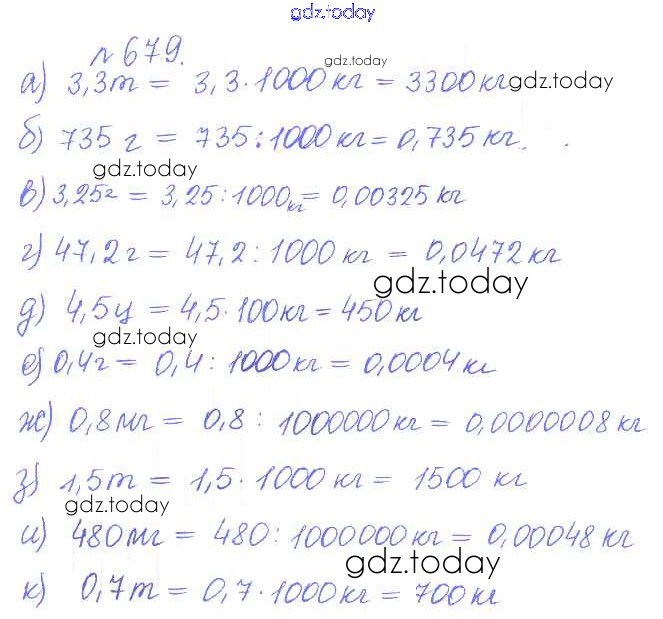 gdz.today
№ 679.
gdz.today
а) 3,3т = 3,3·1000кг = 3300кг
gdz.today
б) 735 г = 735:1000кг = 0,735 кг.
gdz.today
в) 3,25г = 3,25:1000кг = 0,00325 кг
г) 47,2г = 47,2:1000 кг = 0,0472 кг
gdz.today
д) 4,5ц = 4,5·100кг = 450кг
gdz.today
е) 0,4г = 0,4: 1000кг = 0,0004кг
ж) 0,8мг = 0,8 : 1000000кг = 0,0000008 кг
з) 1,5т = 1,5·1000 кг = 1500 кг
gdz.today
и) 480мг = 480:1000000кг = 0,00048 кг
gdz.today
к) 0,7т = 0,7·1000кг = 700кг